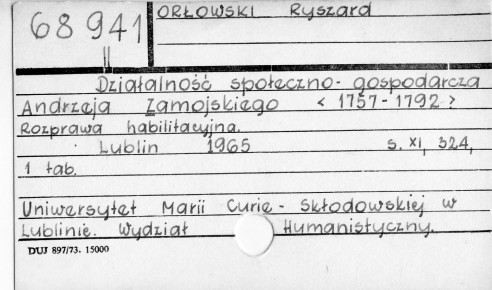 68 941
II
ORŁOWSKI Ryszard
Działalność społeczno-gospodarcza
Andrzeja Zamojskiego < 1757-1792 >
Rozprawa habilitacyjna.
Lublin 1965 s. XI, 324,
1 tab.
Uniwersytet Marii Curie-Skłodowskiej w
Lublinie. Wydział Humanistyczny.
DUJ 897/73. 15000